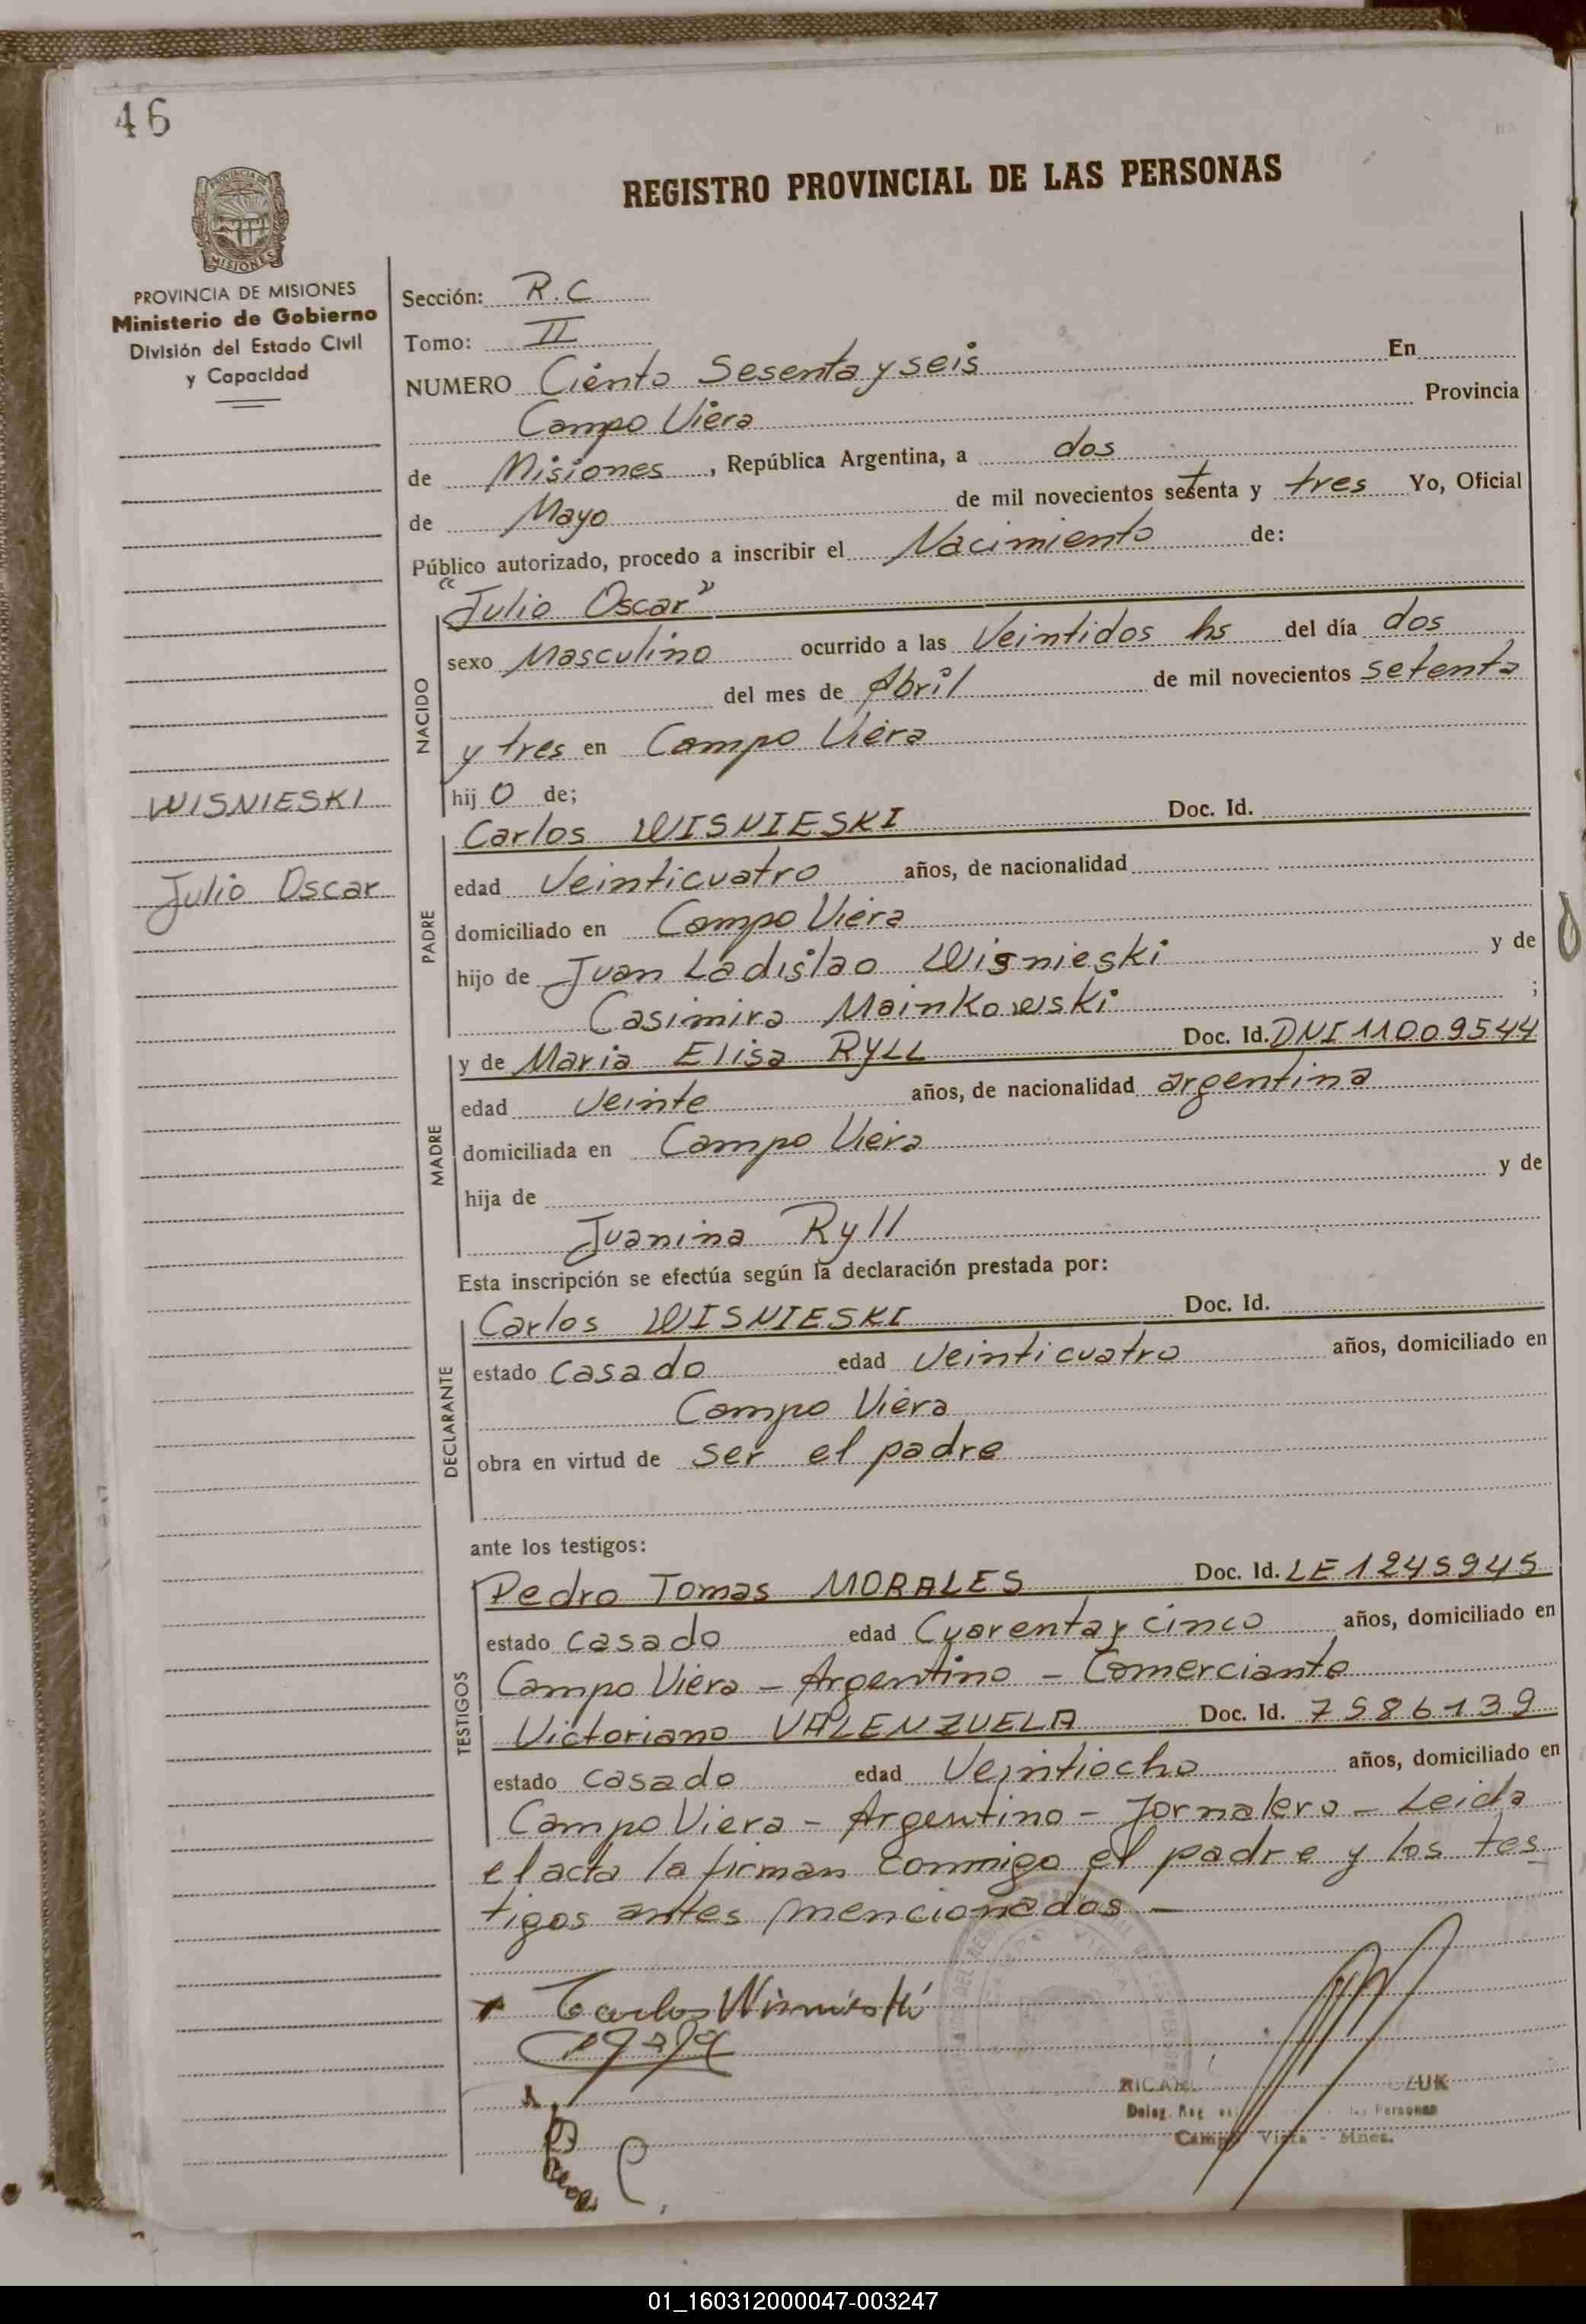 46
REGISTRO PROVINCIAL DE LAS PERSONAS
PROVINCIA DE MISIONES
MISIONES
PROVINCIA DE MISIONES
Ministerio de Gobierno
División del Estado Civil
y Capacidad
WISNIESKI
Julio Oscar
Sección: R.C
Tomo: II
NUMERO Ciento Sesenta y seis En
Campo Viera Provincia
de Misiones, República Argentina, a dos
de Mayo de mil novecientos setenta y tres Yo, Oficial
Público autorizado, procedo a inscribir el Nacimiento de:
"Julio Oscar"
NACIDO
sexo Masculino ocurrido a las Veintidos hs del día dos
del mes de Abril de mil novecientos setenta
y tres en Campo Viera
hij o de;
PADRE
Carlos WISNIESKI Doc. Id.
edad Veinticuatro años, de nacionalidad
domiciliado en Campo Viera
hijo de Juan Ladislao Wisnieski y de
Casimira Mainkowski ;
MADRE
y de Maria Elisa RYLL Doc. Id. DNI 11009544
edad Veinte años, de nacionalidad argentina
domiciliada en Campo Viera
hija de y de
Juanina Ryll
Esta inscripción se efectúa según la declaración prestada por:
DECLARANTE
Carlos WISNIESKI Doc. Id.
estado casado edad Veinticuatro años, domiciliado en
Campo Viera
obra en virtud de ser el padre
ante los testigos:
TESTIGOS
Pedro Tomas MORALES Doc. Id. LE 1245945
estado casado edad Cuarenta y cinco años, domiciliado en
Campo Viera - Argentino - Comerciante
Victoriano VALENZUELA Doc. Id. 7586139
estado casado edad Veintiocho años, domiciliado en
Campo Viera - Argentino - Jornalero - Leida
el acta la firman conmigo el padre y los tes
tigos antes mencionados -
Carlos Wisnieski
Campo Viera - Mnes.
01_160312000047-003247